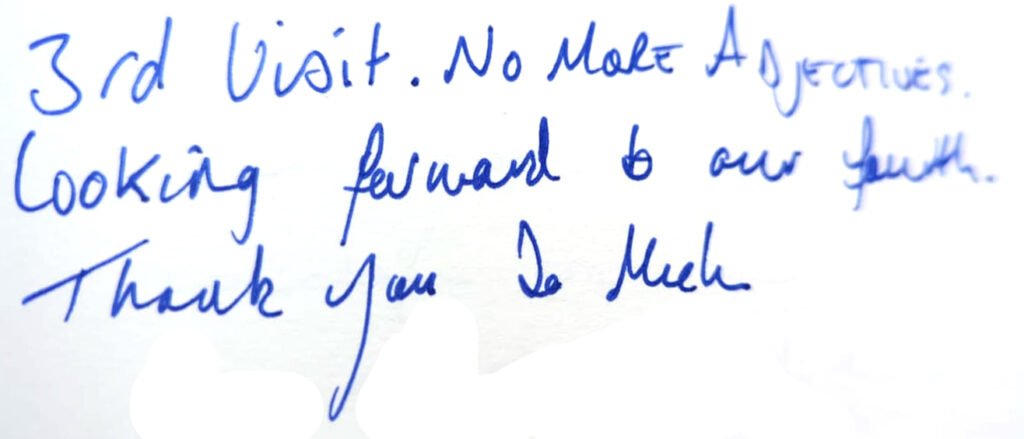 3rd Visit. No MORE ADJECTIVES.
Looking forward to our fourth.
Thank you So Much